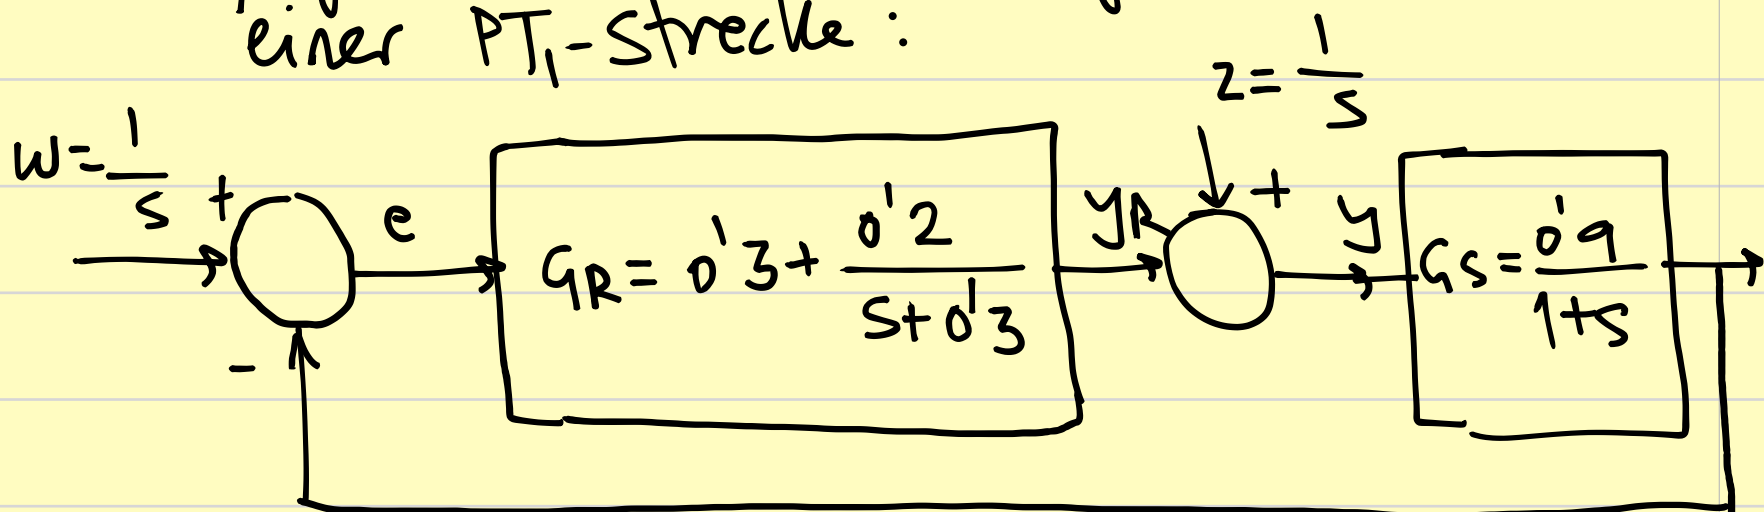 einer PT₁-Strecke :
z = 1/s
w = 1/s +
e
G_R = 0'3 + 0'2/(s+0'3)
y_R
+
y
G_S = 0'9/(1+s)
-